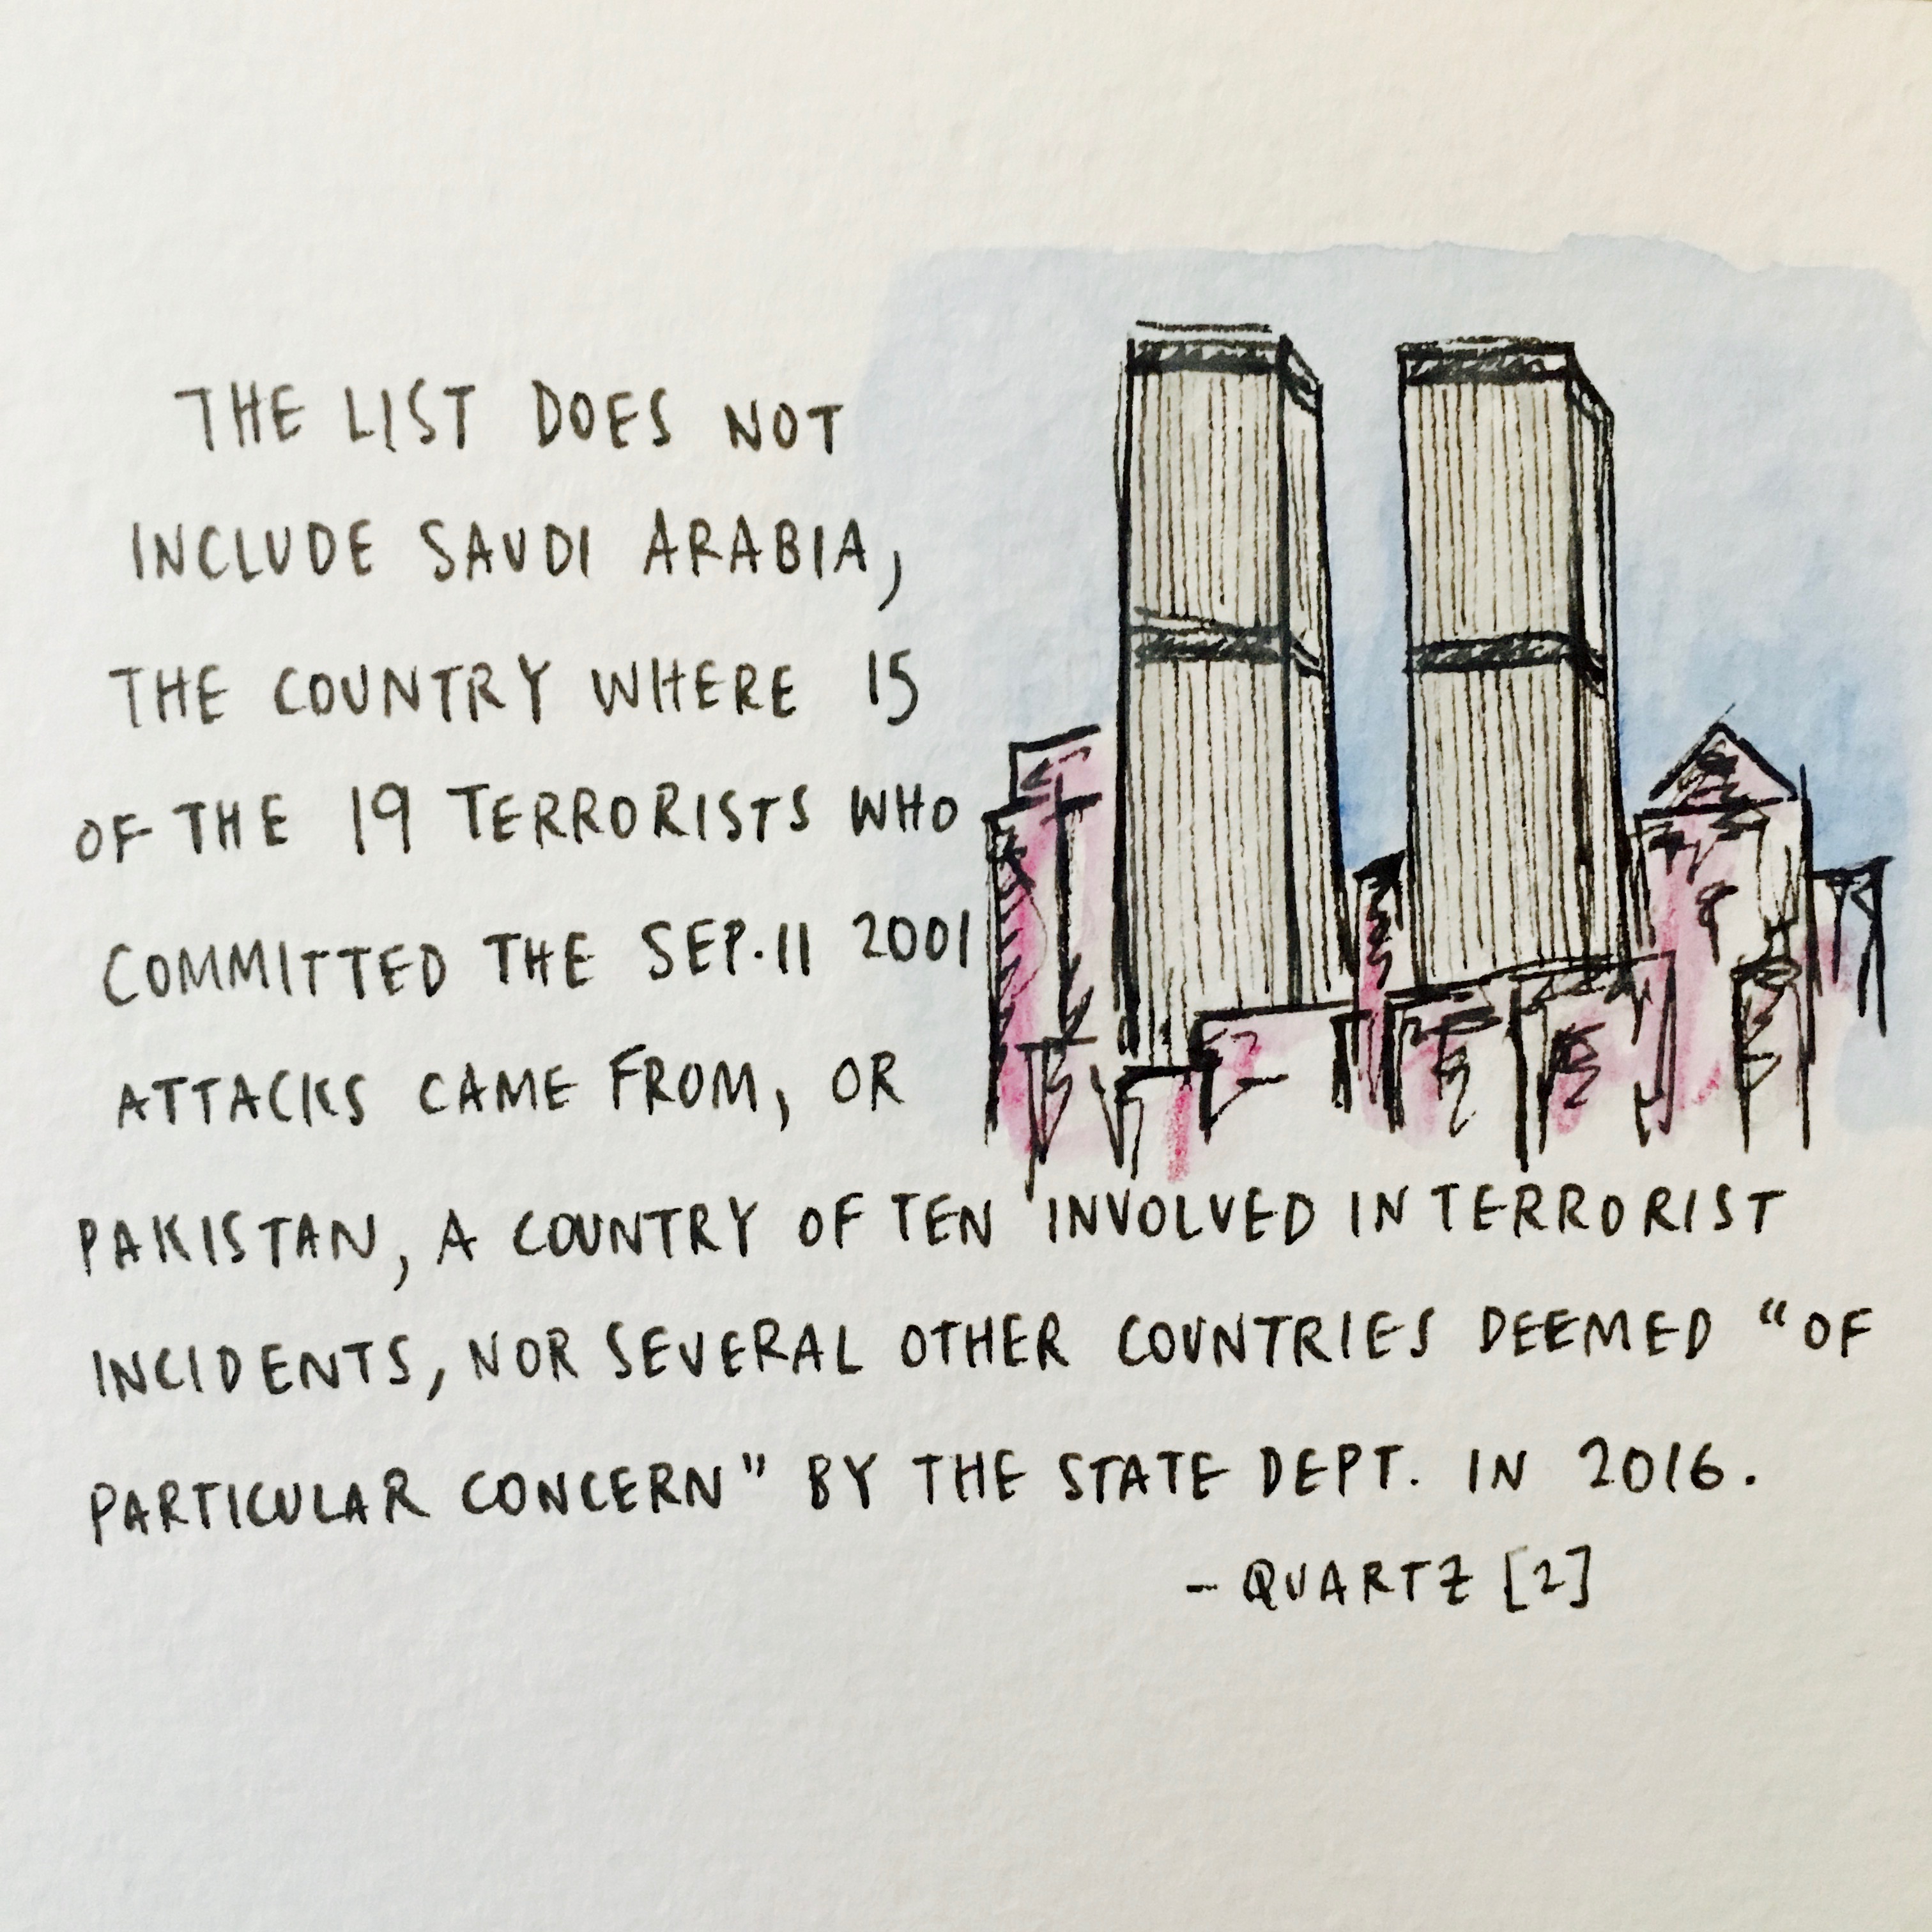 THE LIST DOES NOT
INCLUDE SAUDI ARABIA,
THE COUNTRY WHERE 15
OF THE 19 TERRORISTS WHO
COMMITTED THE SEP. 11 2001
ATTACKS CAME FROM, OR
PAKISTAN, A COUNTRY OF TEN INVOLVED IN TERRORIST
INCIDENTS, NOR SEVERAL OTHER COUNTRIES DEEMED “OF
PARTICULAR CONCERN” BY THE STATE DEPT. IN 2016.
– QUARTZ [2]